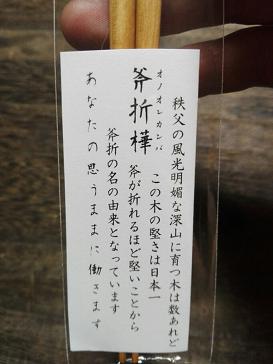 秩父の風光明媚な深山に育つ木は数あれど
この木の堅さは日本一
オノオレカンバ
斧折樺
斧が折れるほど堅いことから
斧折の名の由来となっています
あなたの思うままに働きます